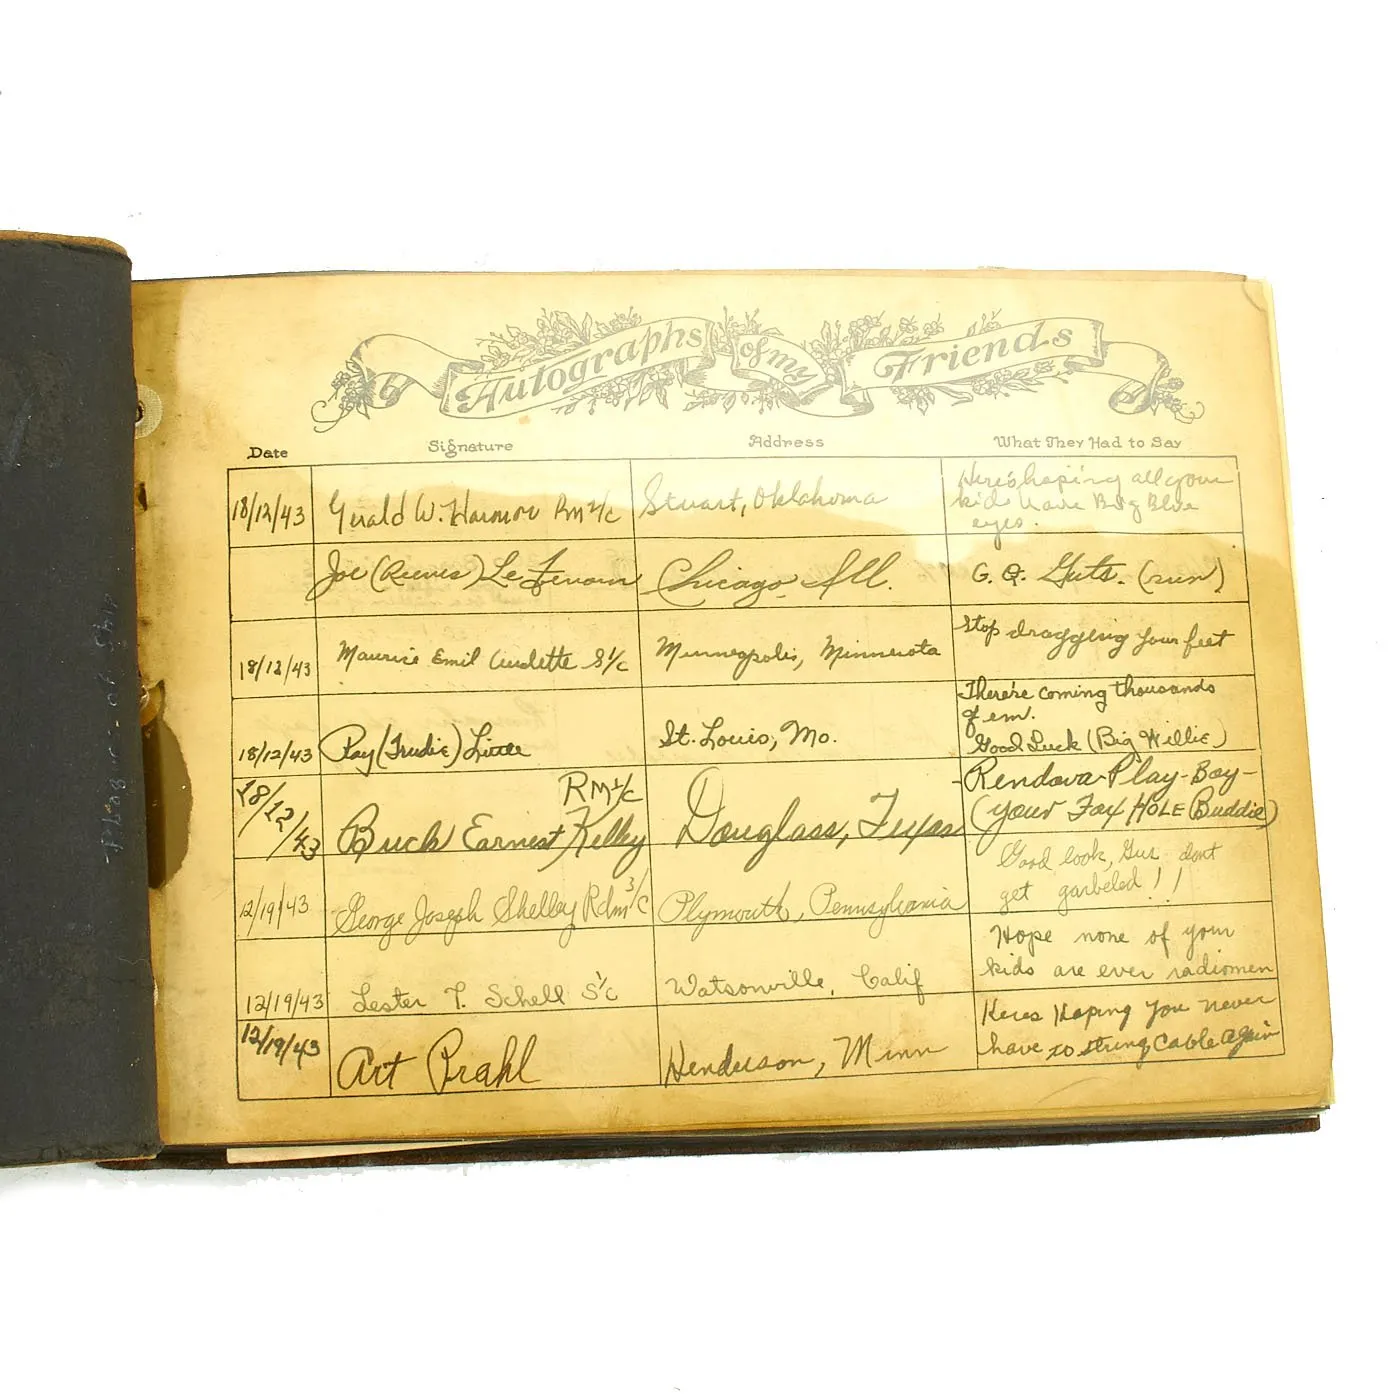 Autographs of my Friends
Date Signature Address What They Had to Say
18/12/43 Gerald W. Harmon Rm 2/c Stuart, Oklahoma Here's hoping all your
kid have Big Blue
eyes.
Joe (Reeves) Chicago Ill. G. Q. Guts. (run)
18/12/43 Maurice Emil Audette S 1/c Minneapolis, Minnesota Stop dragging your feet
18/12/43 Ray (Trudie) Little St. Louis, Mo. There're coming thousands
of em.
Good Luck (Big Willie)
18/12/43 Buck Earnest Kelley RM 1/c Douglass, Texas -Rendova-Play-Boy-
(your Fox HOLE Buddie)
12/19/43 George Joseph Shelley Rdm 3/c Plymouth, Pennsylvania Good look, Gus dont
get garbeled!!
12/19/43 Lester T. Schell S 1/c Watsonville, Calif Hope none of your
kids are ever radiomen
12/19/43 Art Prahl Henderson, Minn Heres Hoping You never
have to string Cable again